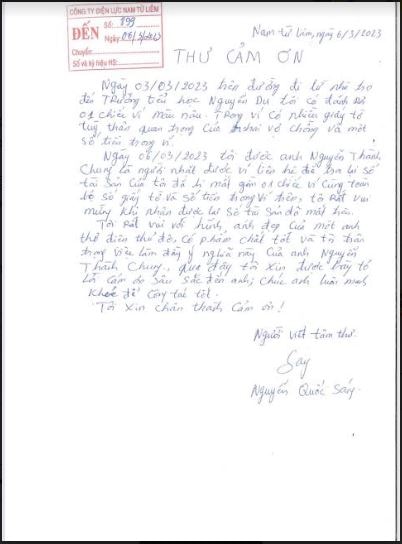 CÔNG TY ĐIỆN LỰC NAM TỪ LIÊM
ĐẾN
Số: 199
Ngày: 06/3/2023
Chuyển:
Số và ký hiệu HS:
Nam từ Liêm, ngày 6/3/2023
THƯ CẢM ƠN
Ngày 03/03/2023 trên đường đi từ nhà trọ
đến TRường tiểu học Nguyễn Du tôi có đánh Rơi
01 chiếc ví màu nâu. TRong ví có nhiều giấy tờ
tuỳ thân quan trọng của hai vợ chồng và một
số tiền trong ví.
Ngày 06/03/2023 tôi được anh Nguyễn Thành
Chung là người nhặt được ví liên hệ để trả lại số
tài sản của tôi đã bị mất gồm 01 chiếc ví cùng toàn
bộ số giấy tờ và số tiền trong ví trên, tôi rất vui
mừng khi nhận được lại số tài sản đã mất trên.
Tôi Rất vui với hình ảnh đẹp của một anh
thợ điện thứ đó, có phẩm chất tốt và trân
trọng việc làm đầy ý nghĩa này của anh Nguyễn
Thành Chung, qua đây tôi xin được bày tỏ
lời cảm ơn sâu sắc đến anh, chúc anh luôn mạnh
khoẻ để công tác tốt.
Tôi xin chân thành cảm ơn!
Người viết tâm thư.
Say
Nguyễn Quốc